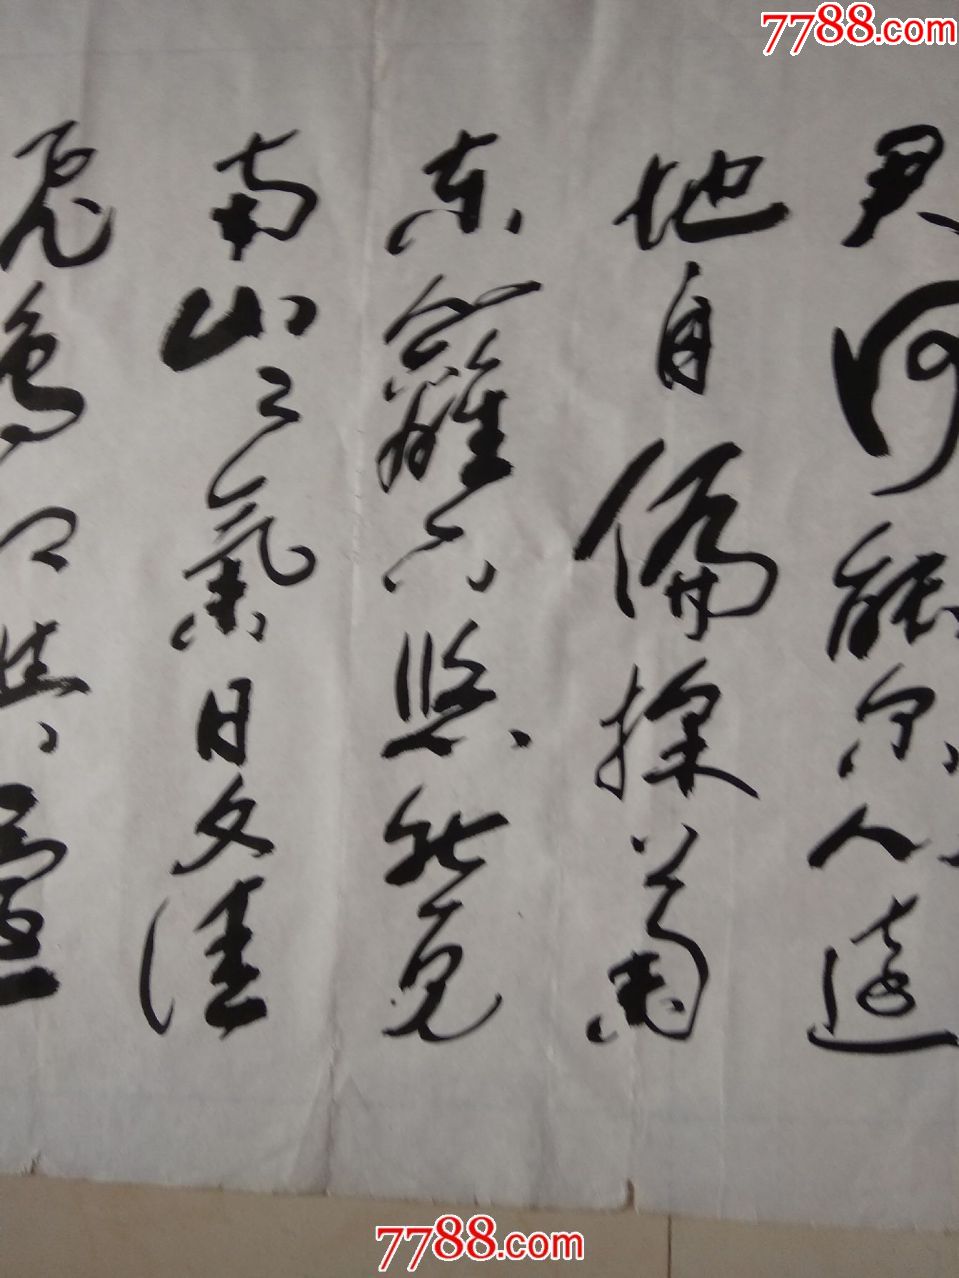 7788.com
君何能尔心遠
地自偏採菊
东籬下悠然見
南山々氣日夕佳
飛鳥相與還
7788.com